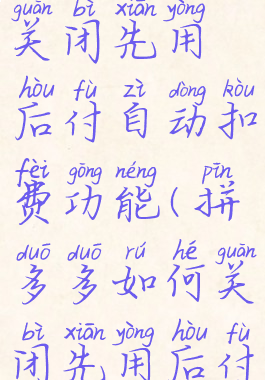 guān bì xiān yòng
关闭先用
hòu fù zì dòng kòu
后付自动扣
fèi gōng néng pīn
费功能(拼
duō duō rú hé guān
多多如何关
bì xiān yòng hòu fù
闭先用后付